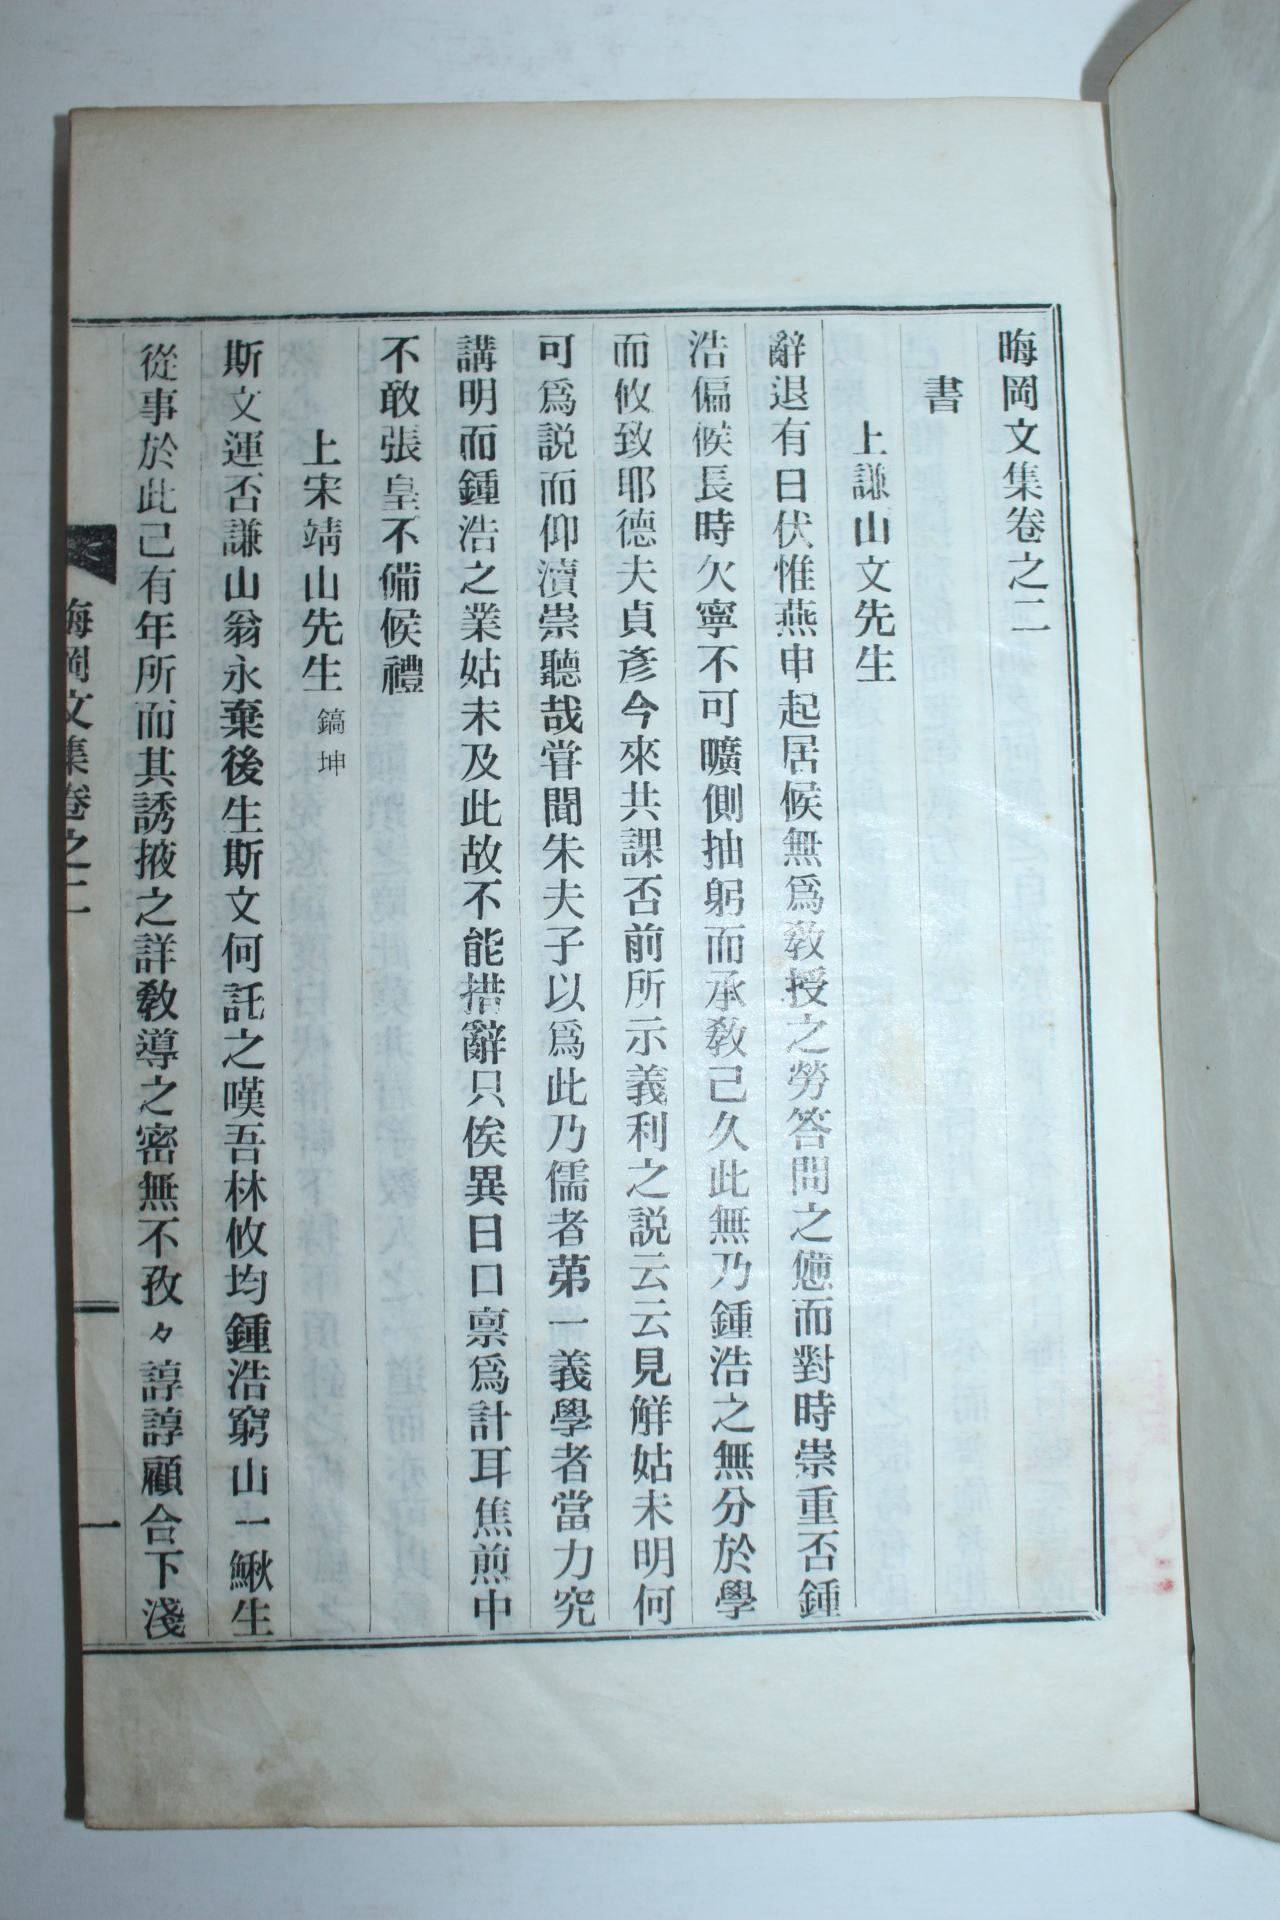 晦岡文集卷之二
書
上謙山文先生
辭退有日伏惟燕申起居候無爲敎授之勞答問之憊而對時崇重否鍾
浩偏候長時欠寧不可曠側抽躬而承敎己久此無乃鍾浩之無分於學
而攸致耶德夫貞彦今來共課否前所示義利之説云云見解姑未明何
可爲説而仰瀆崇聽哉甞聞朱夫子以爲此乃儒者苐一義學者當力究
講明而鍾浩之業姑未及此故不能措辭只俟異日口稟爲計耳焦煎中
不敢張皇不備候禮
上宋靖山先生 鎬坤
斯文運否謙山翁永棄後生斯文何託之嘆吾林攸均鍾浩窮山一鰍生
從事於此己有年所而其誘掖之詳敎導之密無不孜々諄諄顧合下淺
晦岡文集卷之二
一